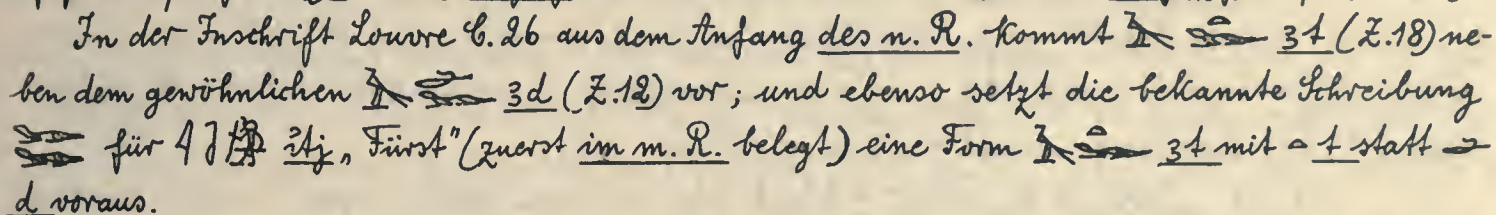 In der Inschrift Louvre C. 26 aus dem Anfang des n. R. kommt 𓅐 3t (Z. 18) ne-
ben dem gewöhnlichen 3d (Z. 12) vor; und ebenso setzt die bekannte Schreibung
𓆊𓆊 für itj „Fürst" (zuerst im m. R. belegt) eine Form 3t mit 𓏏 t statt 𓂧
d voraus.